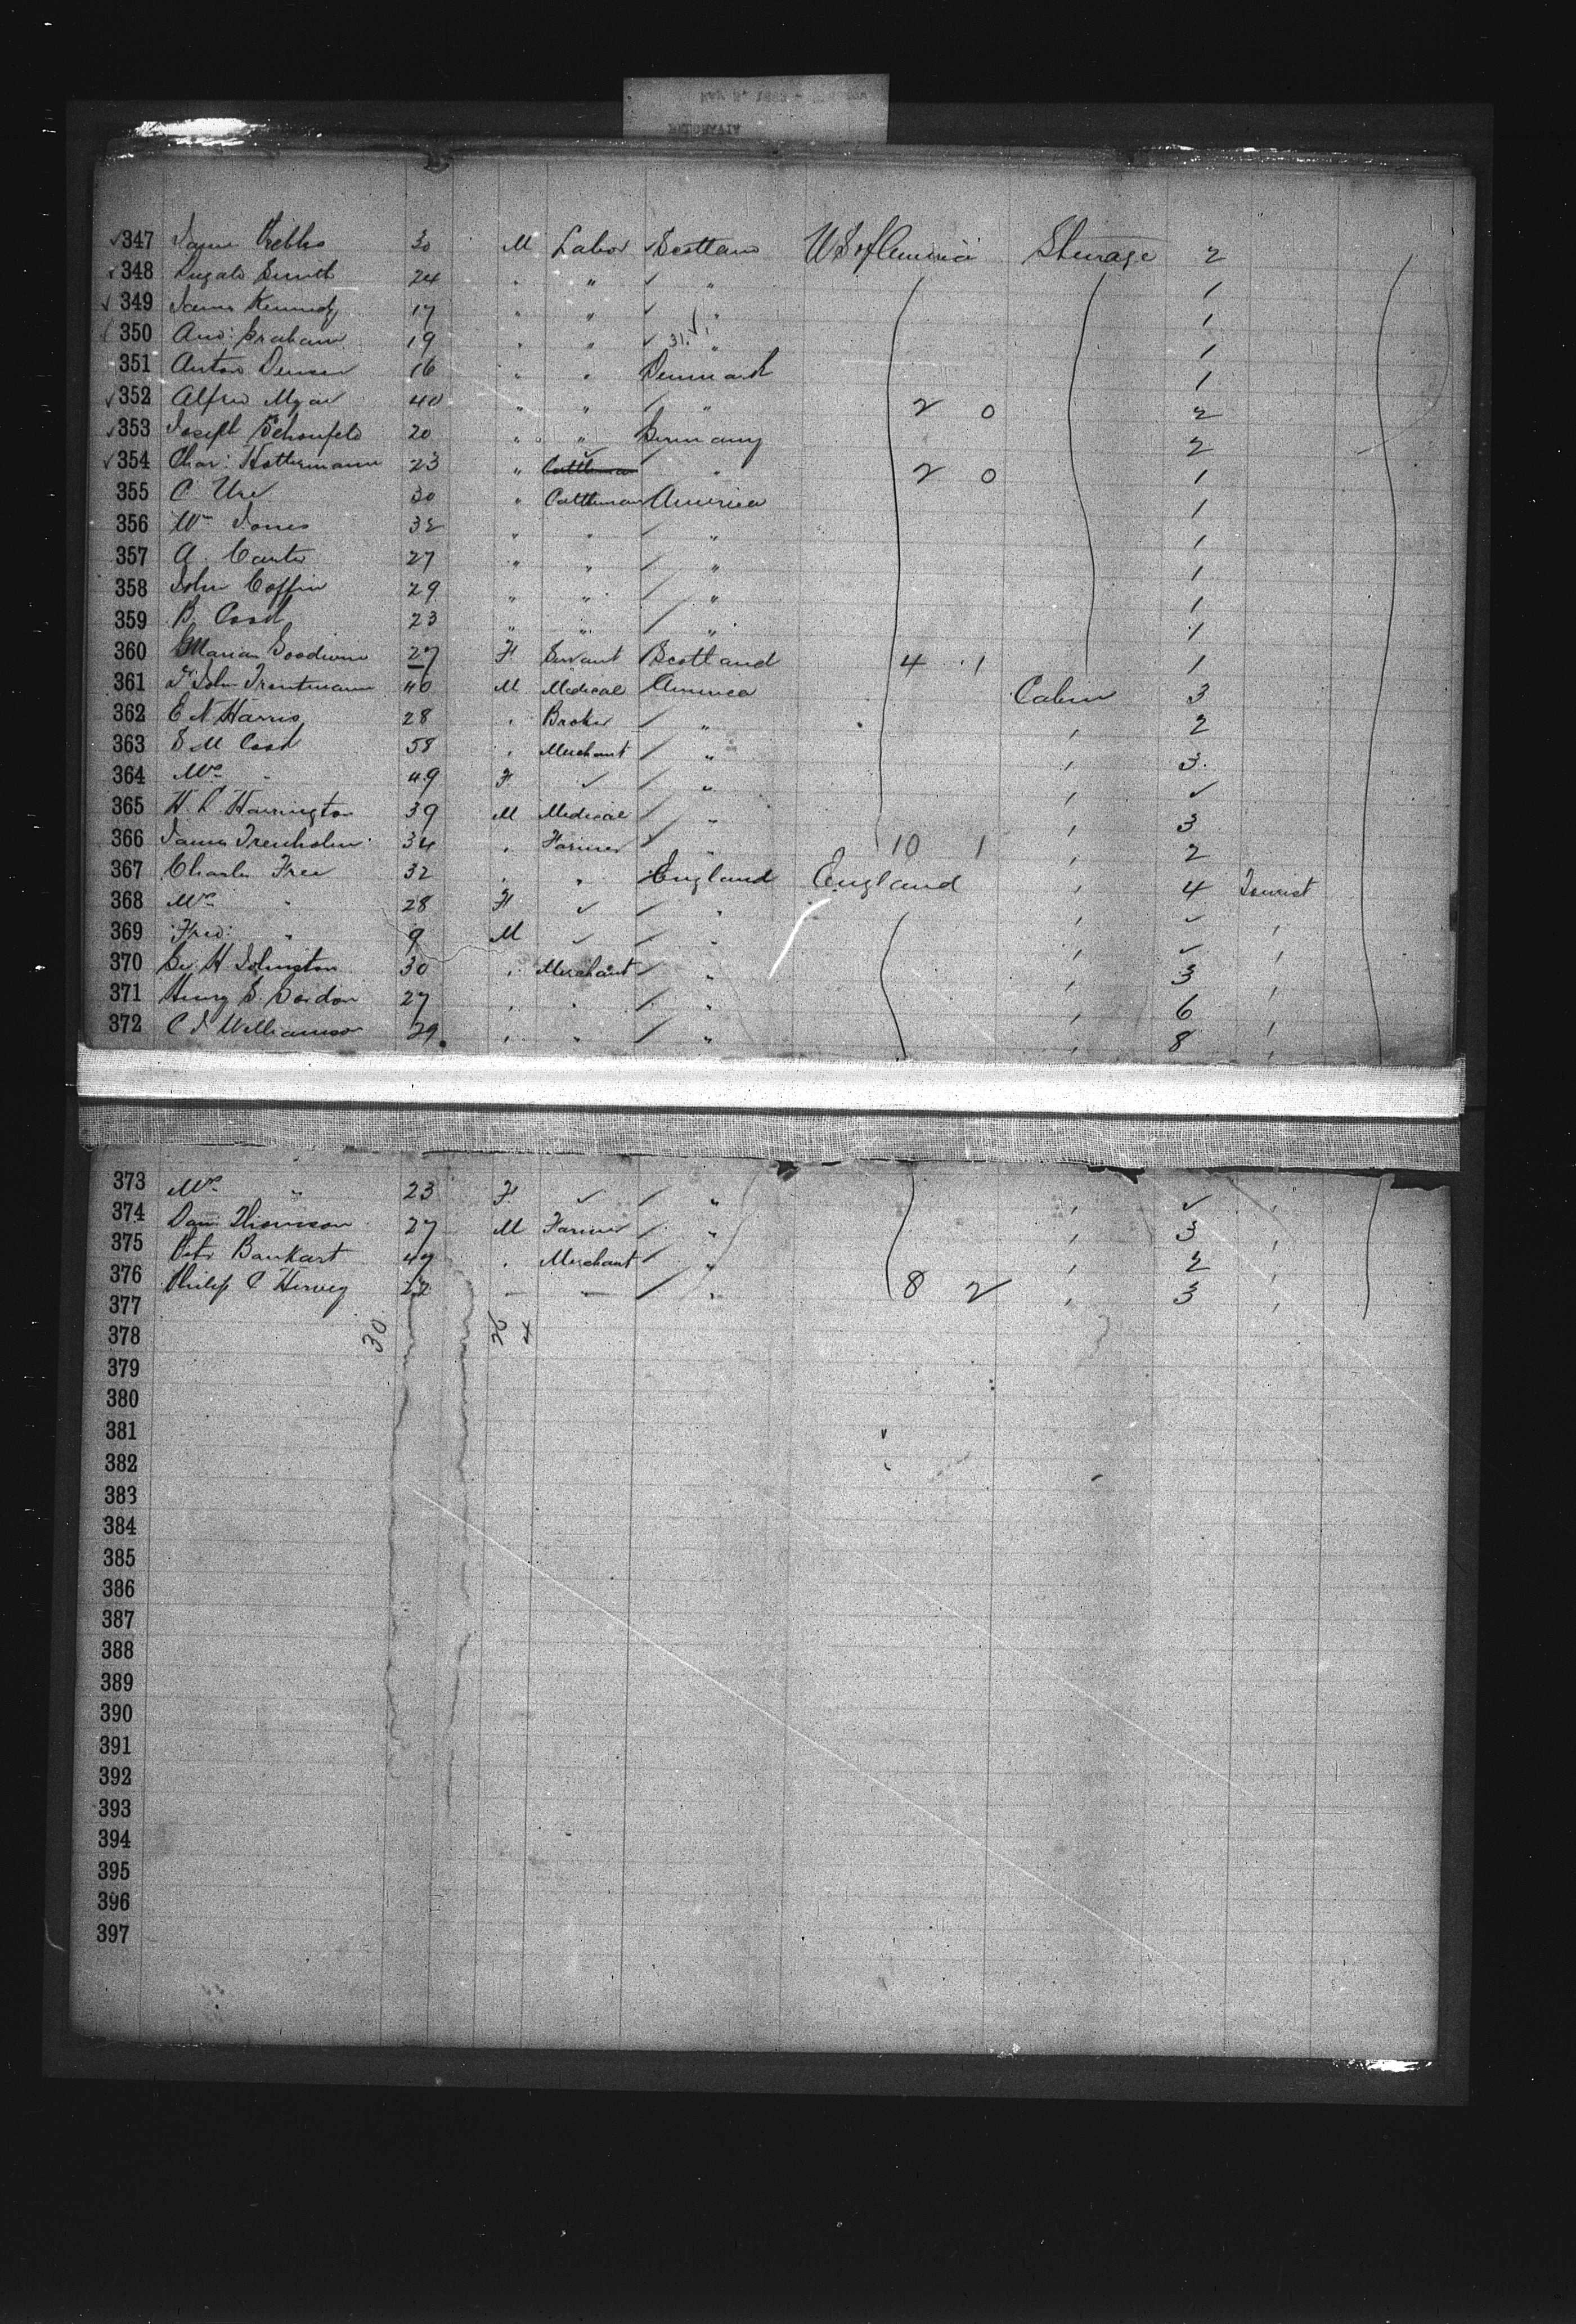 347 James 30 M Labor Scotland U S of America Steerage 2
348 Dugald Smith 24 " " " 1
349 James Kennedy 17 " " " 1
350 And: Graham 19 " " " 1
351 Anton Densen 16 " " Denmark 1
352 Alfred 40 " " " 2 0 2
353 Joseph Schonfeld 20 " " Germany 2
354 Chas: Hottermann 23 " Cattleman " 2 0 1
355 C Ure 30 " Cattleman America 1
356 Wm Jones 32 " " " 1
357 A. Carter 27 " " " 1
358 John Coffin 29 " " " 1
359 B. Cook 23 " " " 1
360 Marian Goodwin 27 F Servant Scotland 4 1 1
361 Dr John Trentmann 40 M Medical America Cabin 3
362 E N Harris 28 " Broker " " 2
363 S M Cook 58 " Merchant " " 3
364 Mrs " 49 F " "
365 H. C. Harrington 39 M Medical " " 3
366 James Trenholm 34 " Farmer " 10 1 " 2
367 Charles Free 32 " " England England " 4 Tourist
368 Mrs " 28 F " " "
369 Fred: " 9 M " " "
370 Geo H Johnston 30 " Merchant " " 3 "
371 Henry S. Gordon 27 " " " " 6 "
372 C J Williamson 29 " " " " 8 "
373 Mrs " 23 F " " "
374 Dan Thomson 27 M Farmer " " 3 "
375 Bankart 47 " Merchant " " 2 "
376 Philip C Hervey 22 " 8 2 " 3 "
377
378 30 26 4
379
380
381
382
383
384
385
386
387
388
389
390
391
392
393
394
395
396
397